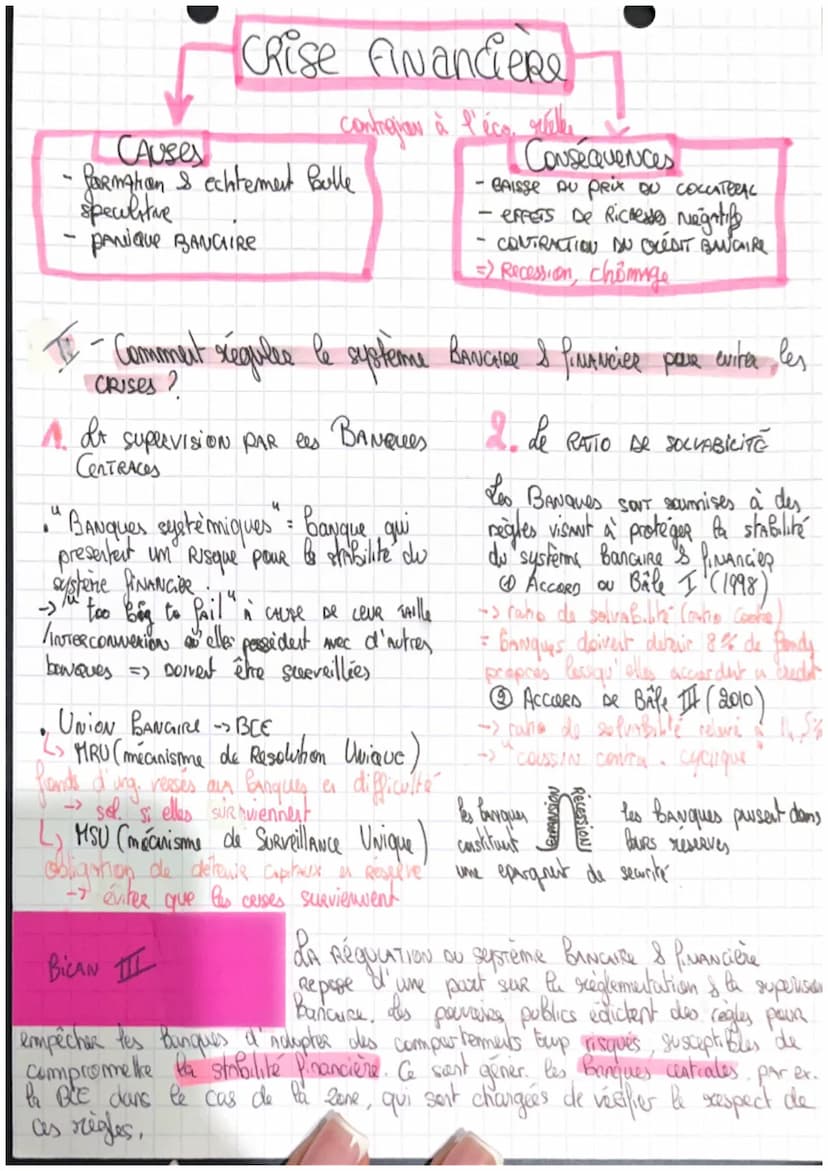 Crise Financière
contagion à l'éco. réelle
Causes
- formation & echtement bulle
speculative
- panique Bancaire
Conséquences
- Baisse du prix du collateral
- effets de Richesses négatifs
- contraction du crédit Bancaire
=> Recession, chômage
III - Comment réguler le système Bancaire & financier pour eviter les
crises ?
1. La supervision par les Banques
Centrales
• "Banques systèmiques" = banque qui
presentent un Risque pour la stabilité du
système financier.
-> "too big to fail" à cause de leur taille
/interconnexion qu'elles possèdent avec d'autres
banques => doivent être surveillées
• Union Bancaire -> BCE
↳ MRU (mécanisme de Resolution Unique)
fonds d'urg. versés aux banques en difficulté
-> sol. si elles surviennent
↳ MSU (mécanisme de Surveillance Unique)
obligation de détenir capitaux en réserve
-> éviter que les crises surviennent
2. Le ratio de solvabilité
Les Banques sont soumises à des
règles visant à protéger la stabilité
du système Bancaire & financier
① Accord ou Bâle I (1998)
-> ratio de solvabilité (ratio Cooke)
= banques doivent detenir 8% de fonds
propres lorsqu'elles accordent un credit
③ Accords de Bâle III (2010)
-> ratio de solvabilité relevé à 5%
-> "coussin contra. cyclique"
les banques
constituent
une epargne de securité
Expansion
Récession
les banques puisent dans
leurs réserves
Bilan III
La Régulation du système Bancaire & financière
repose d'une part sur la réglementation & la supervision
bancaire. les pouvoirs publics édictent des règles pour
empêcher les banques d'adopter des comportements trop risqués, susceptibles de
compromettre la stabilité financière. Ce sont géner. les banques centrales, par ex.
la BCE dans le cas de la zone, qui sont chargées de vérifier le respect de
ces règles.